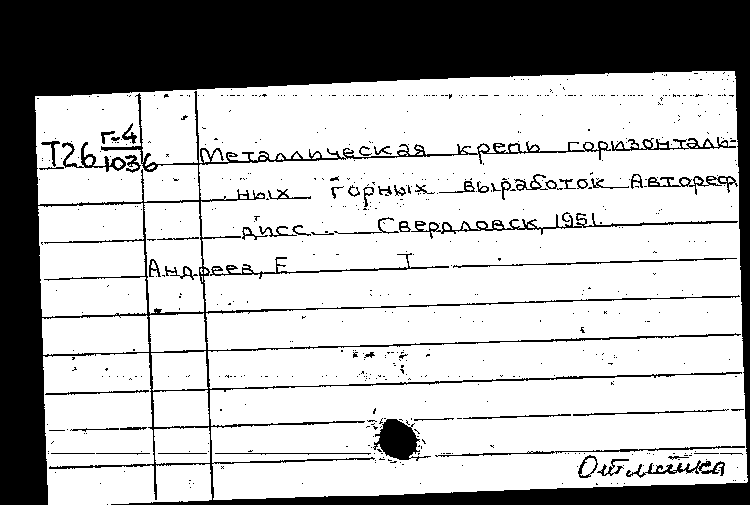 Т26 Г-4
1036 Металлическая крепь горизонталь-
ных горных выработок Автореф
дисс... Свердловск, 1951.
Андреев, Е Т
Отметка